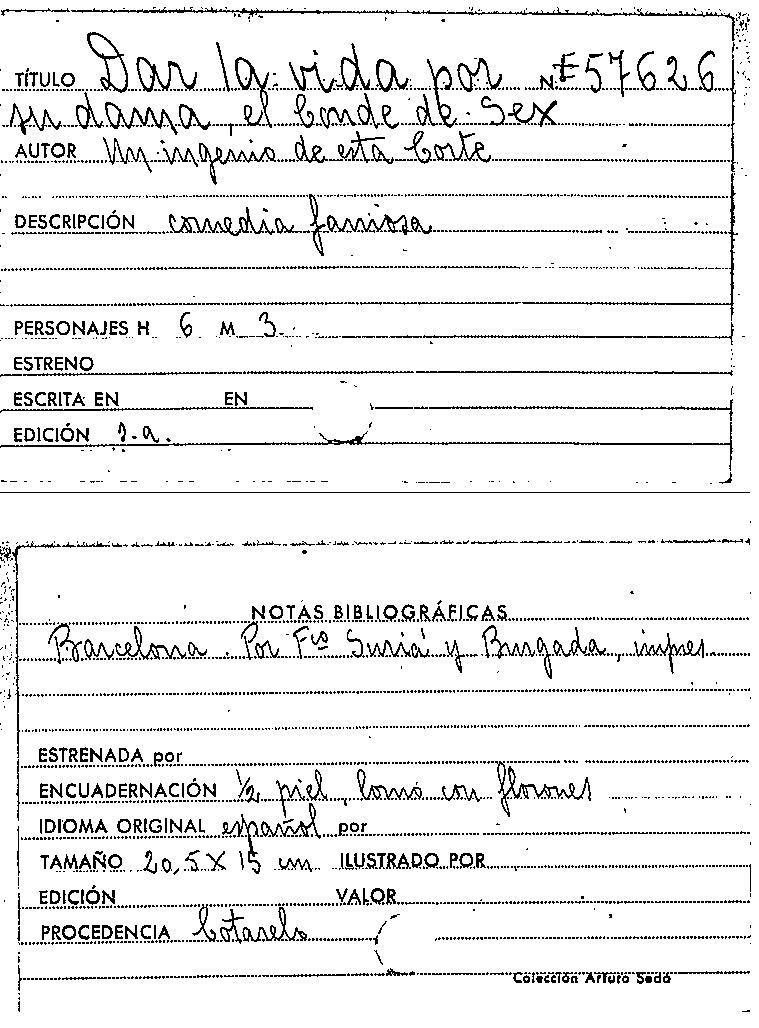 TÍTULO Dar la vida por Nº 57626
su dama, el Conde de Sex
AUTOR Un ingenio de esta Corte
DESCRIPCIÓN comedia famosa
PERSONAJES H 6 M 3
ESTRENO
ESCRITA EN EN
EDICIÓN s.a.
NOTAS BIBLIOGRÁFICAS
Barcelona. Por Fco Suriá y Burgada, impres
ESTRENADA por
ENCUADERNACIÓN ½ piel, lomo con florones
IDIOMA ORIGINAL español por
TAMAÑO 20,5 X 15 cm ILUSTRADO POR
EDICIÓN VALOR
PROCEDENCIA Cotarelo
Colección Arturo Sedó